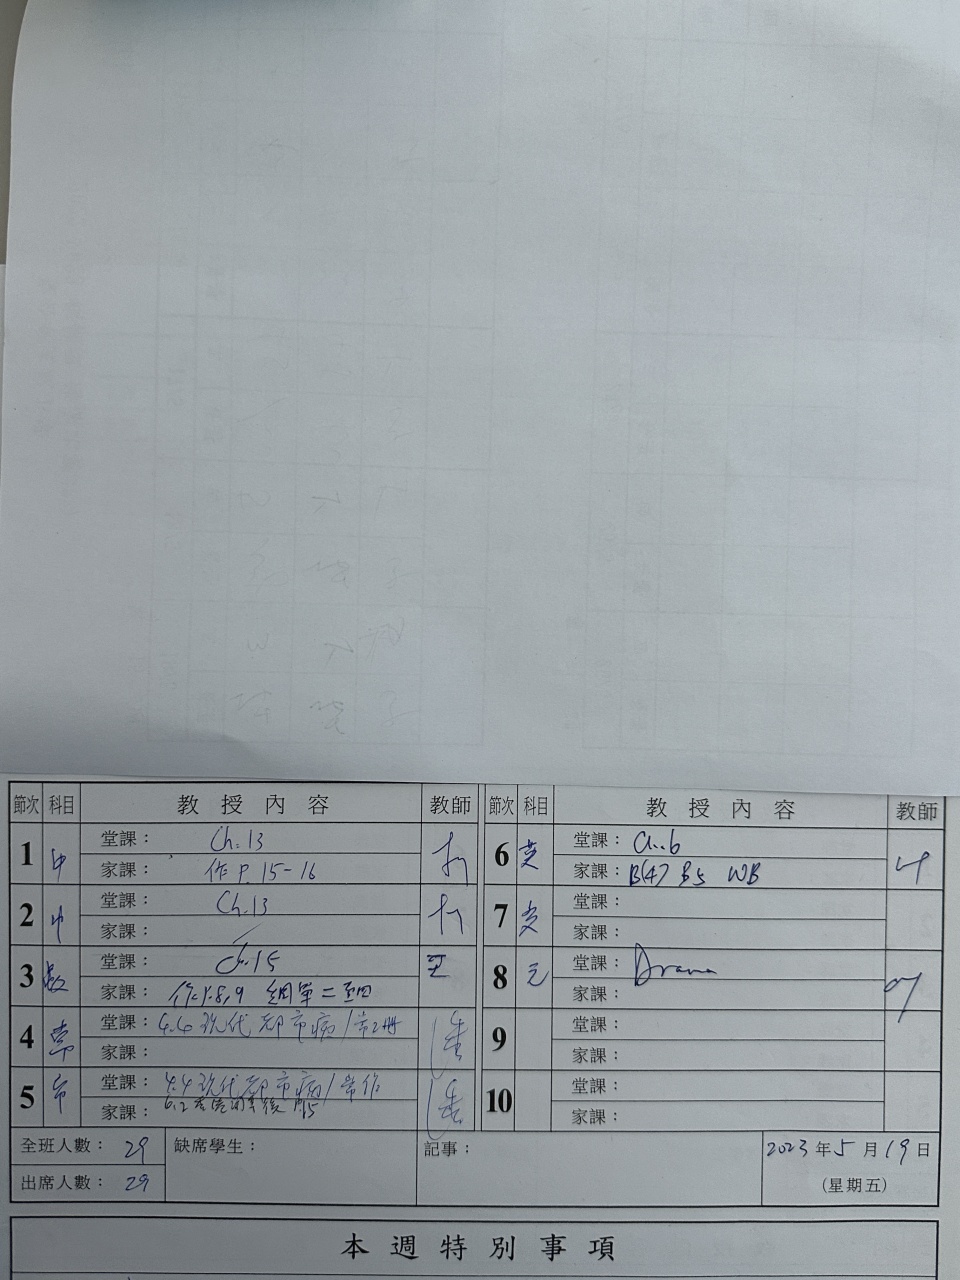 節次 科目 教授內容 教師
1 中 堂課： Ch.13
家課： 作 P.15-16
2 中 堂課： Ch.13
家課：
3 數 堂課： Ch.15 王
家課： 作:P.8,9
4 常 堂課： 4.4 現代都市病/常2冊
家課：
5 常 堂課： 4.4 現代都市病/常作
家課：
節次 科目 教授內容 教師
6 英 堂課： Ch.6
家課： B(47) B5 WB
7 英 堂課：
家課：
8 堂課： Drama
家課：
9 堂課：
家課：
10 堂課：
家課：
全班人數： 29 缺席學生： 記事： 2023 年 5 月 19 日
出席人數： 29 (星期五)
本週特別事項